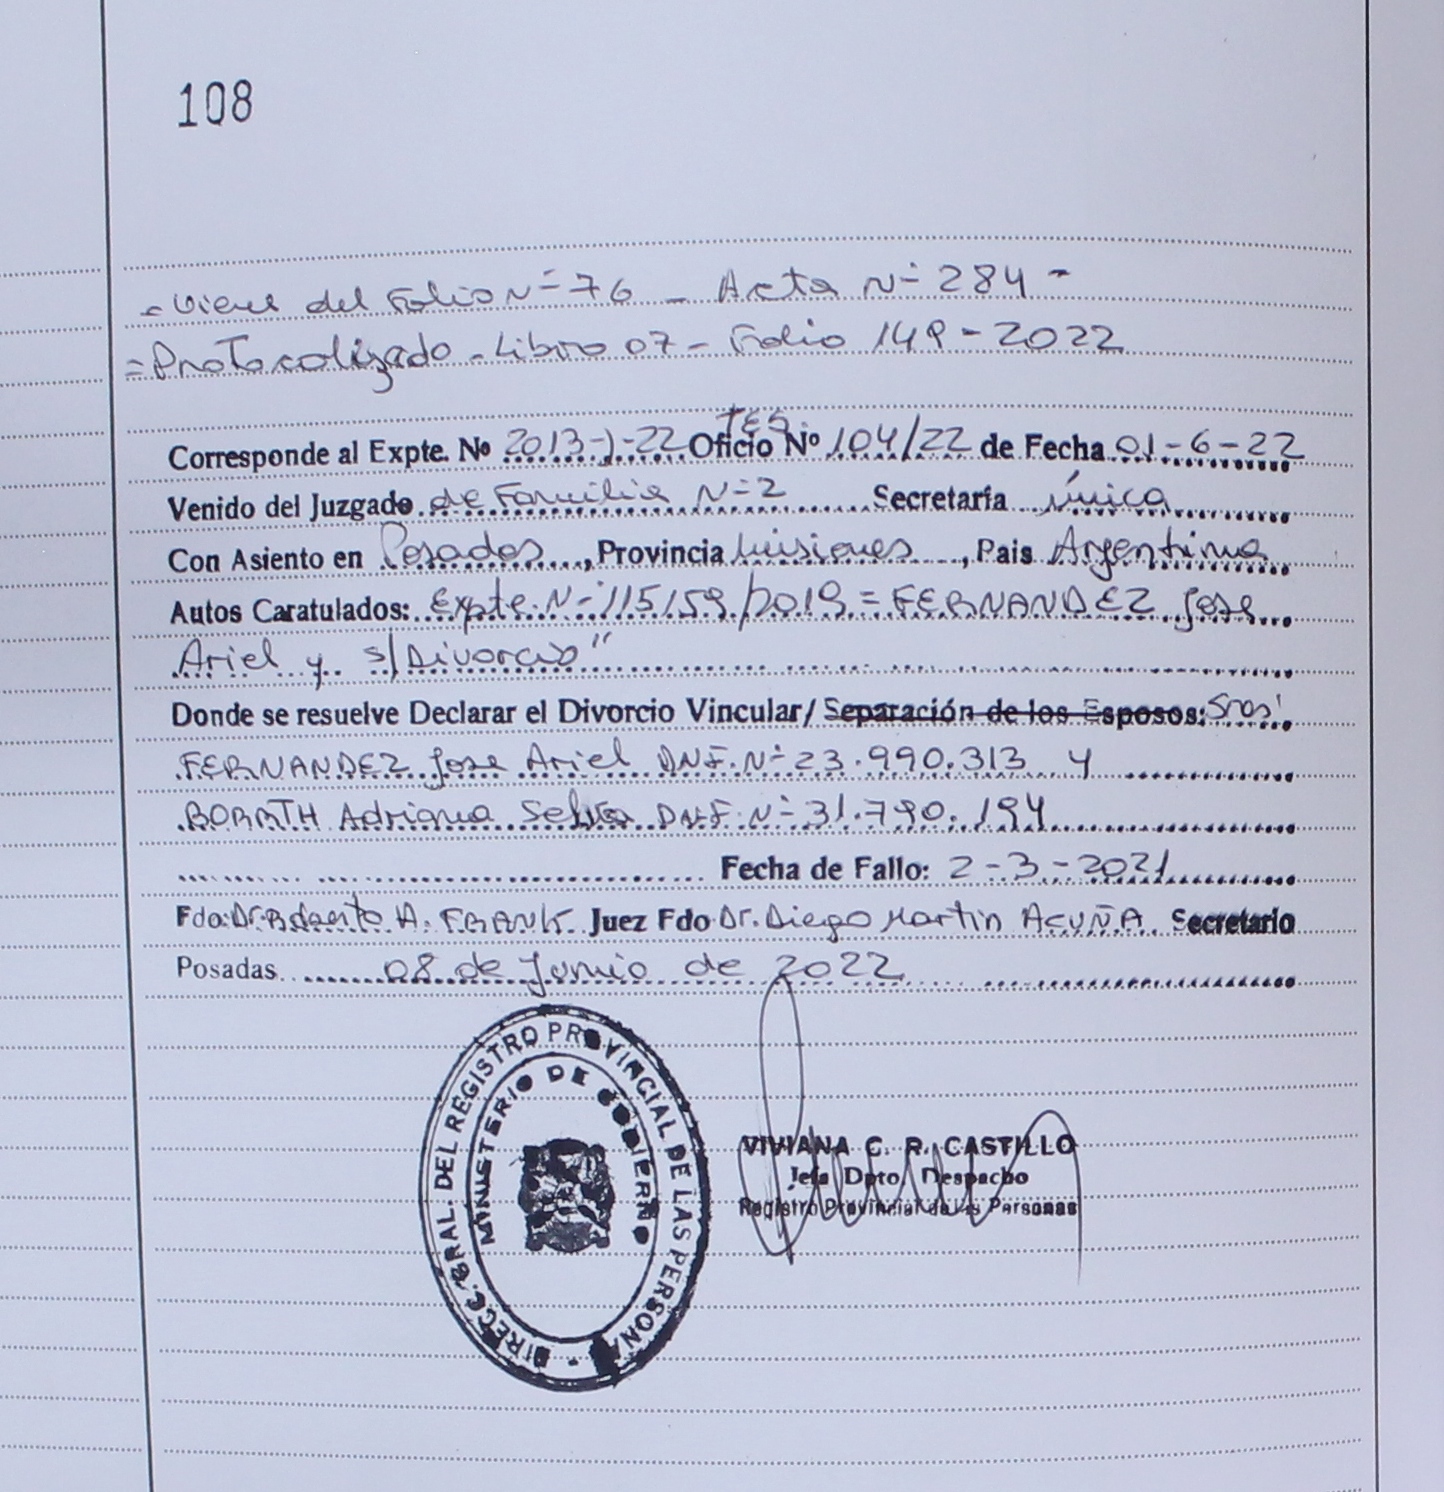 108
= Viene del Folio Nº 76 - Acta Nº 284 -
= Protocolizado - Libro 07 - Folio 149 - 2022
TES.
Corresponde al Expte. Nº 2013-J-22 Oficio Nº 104/22 de Fecha 01-6-22
Venido del Juzgado de Familia Nº 2 Secretaría única
Con Asiento en Posadas, Provincia Misiones, Pais Argentina
Autos Caratulados: Expte. Nº 115159/2019 = FERNANDEZ Jose
Ariel y s/Divorcio"
Donde se resuelve Declarar el Divorcio Vincular/ Separación de los Esposos: Sres:
FERNANDEZ Jose Ariel DNI. Nº 23.990.313 y
BORATH Adriana Selva DNI. Nº 31.790.194
Fecha de Fallo: 2-3-2021
Fdo: Dr. Roberto A. FRANK Juez Fdo Dr. Diego Martin ACUÑA Secretario
Posadas 08 de Junio de 2022
DIRECC. GRAL. DEL REGISTRO PROVINCIAL DE LAS PERSONAS -
MINISTERIO DE GOBIERNO
VIVIANA C. R. CASTILLO
Jefa Dpto. Despacho
Registro Provincial de las Personas